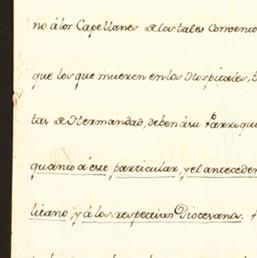 no á los Capellanes de los tales Convento
que los que mueren en los Hospitales, t
tas de Hermandad, deben á su Párroqu
quanto á este particular, y el anteceden
litano, y á los respectivos Diocesanos.